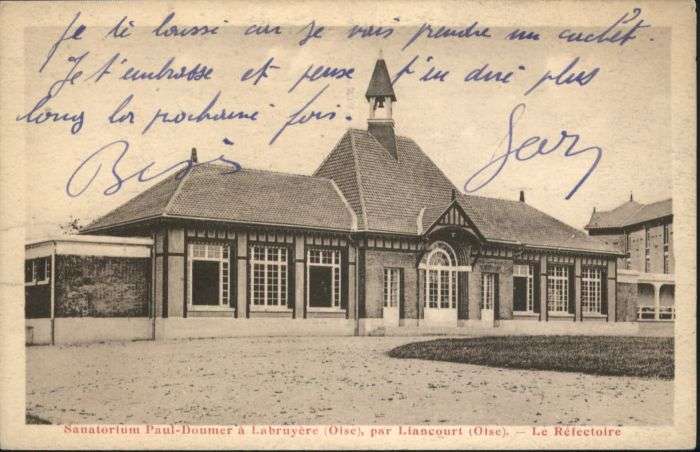 Je te laisse car je vais prendre un cachet.
Je t'embrasse et pense t'en dire plus
long la prochaine fois.
Bises
Sanatorium Paul-Doumer à Labruyère (Oise), par Liancourt (Oise). — Le Réfectoire